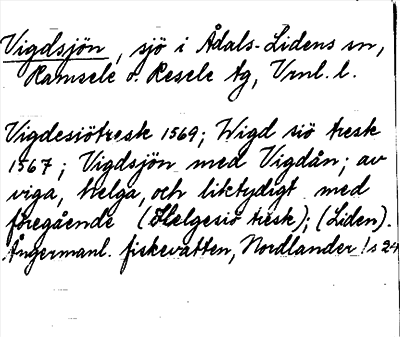 Vigdsjön, sjö i Ådals-Lidens sn,
Ramsele o. Resele tg, Vrnl. l.
Vigdesiötresk 1569; Wigd siö tresk
1567; Vigdsjön med Vigdån; av
viga, helga, och liktydigt med
föregående (Helgesiö tresk); (Liden).
Ångermanl. fiskevatten, Nordlander! s 24